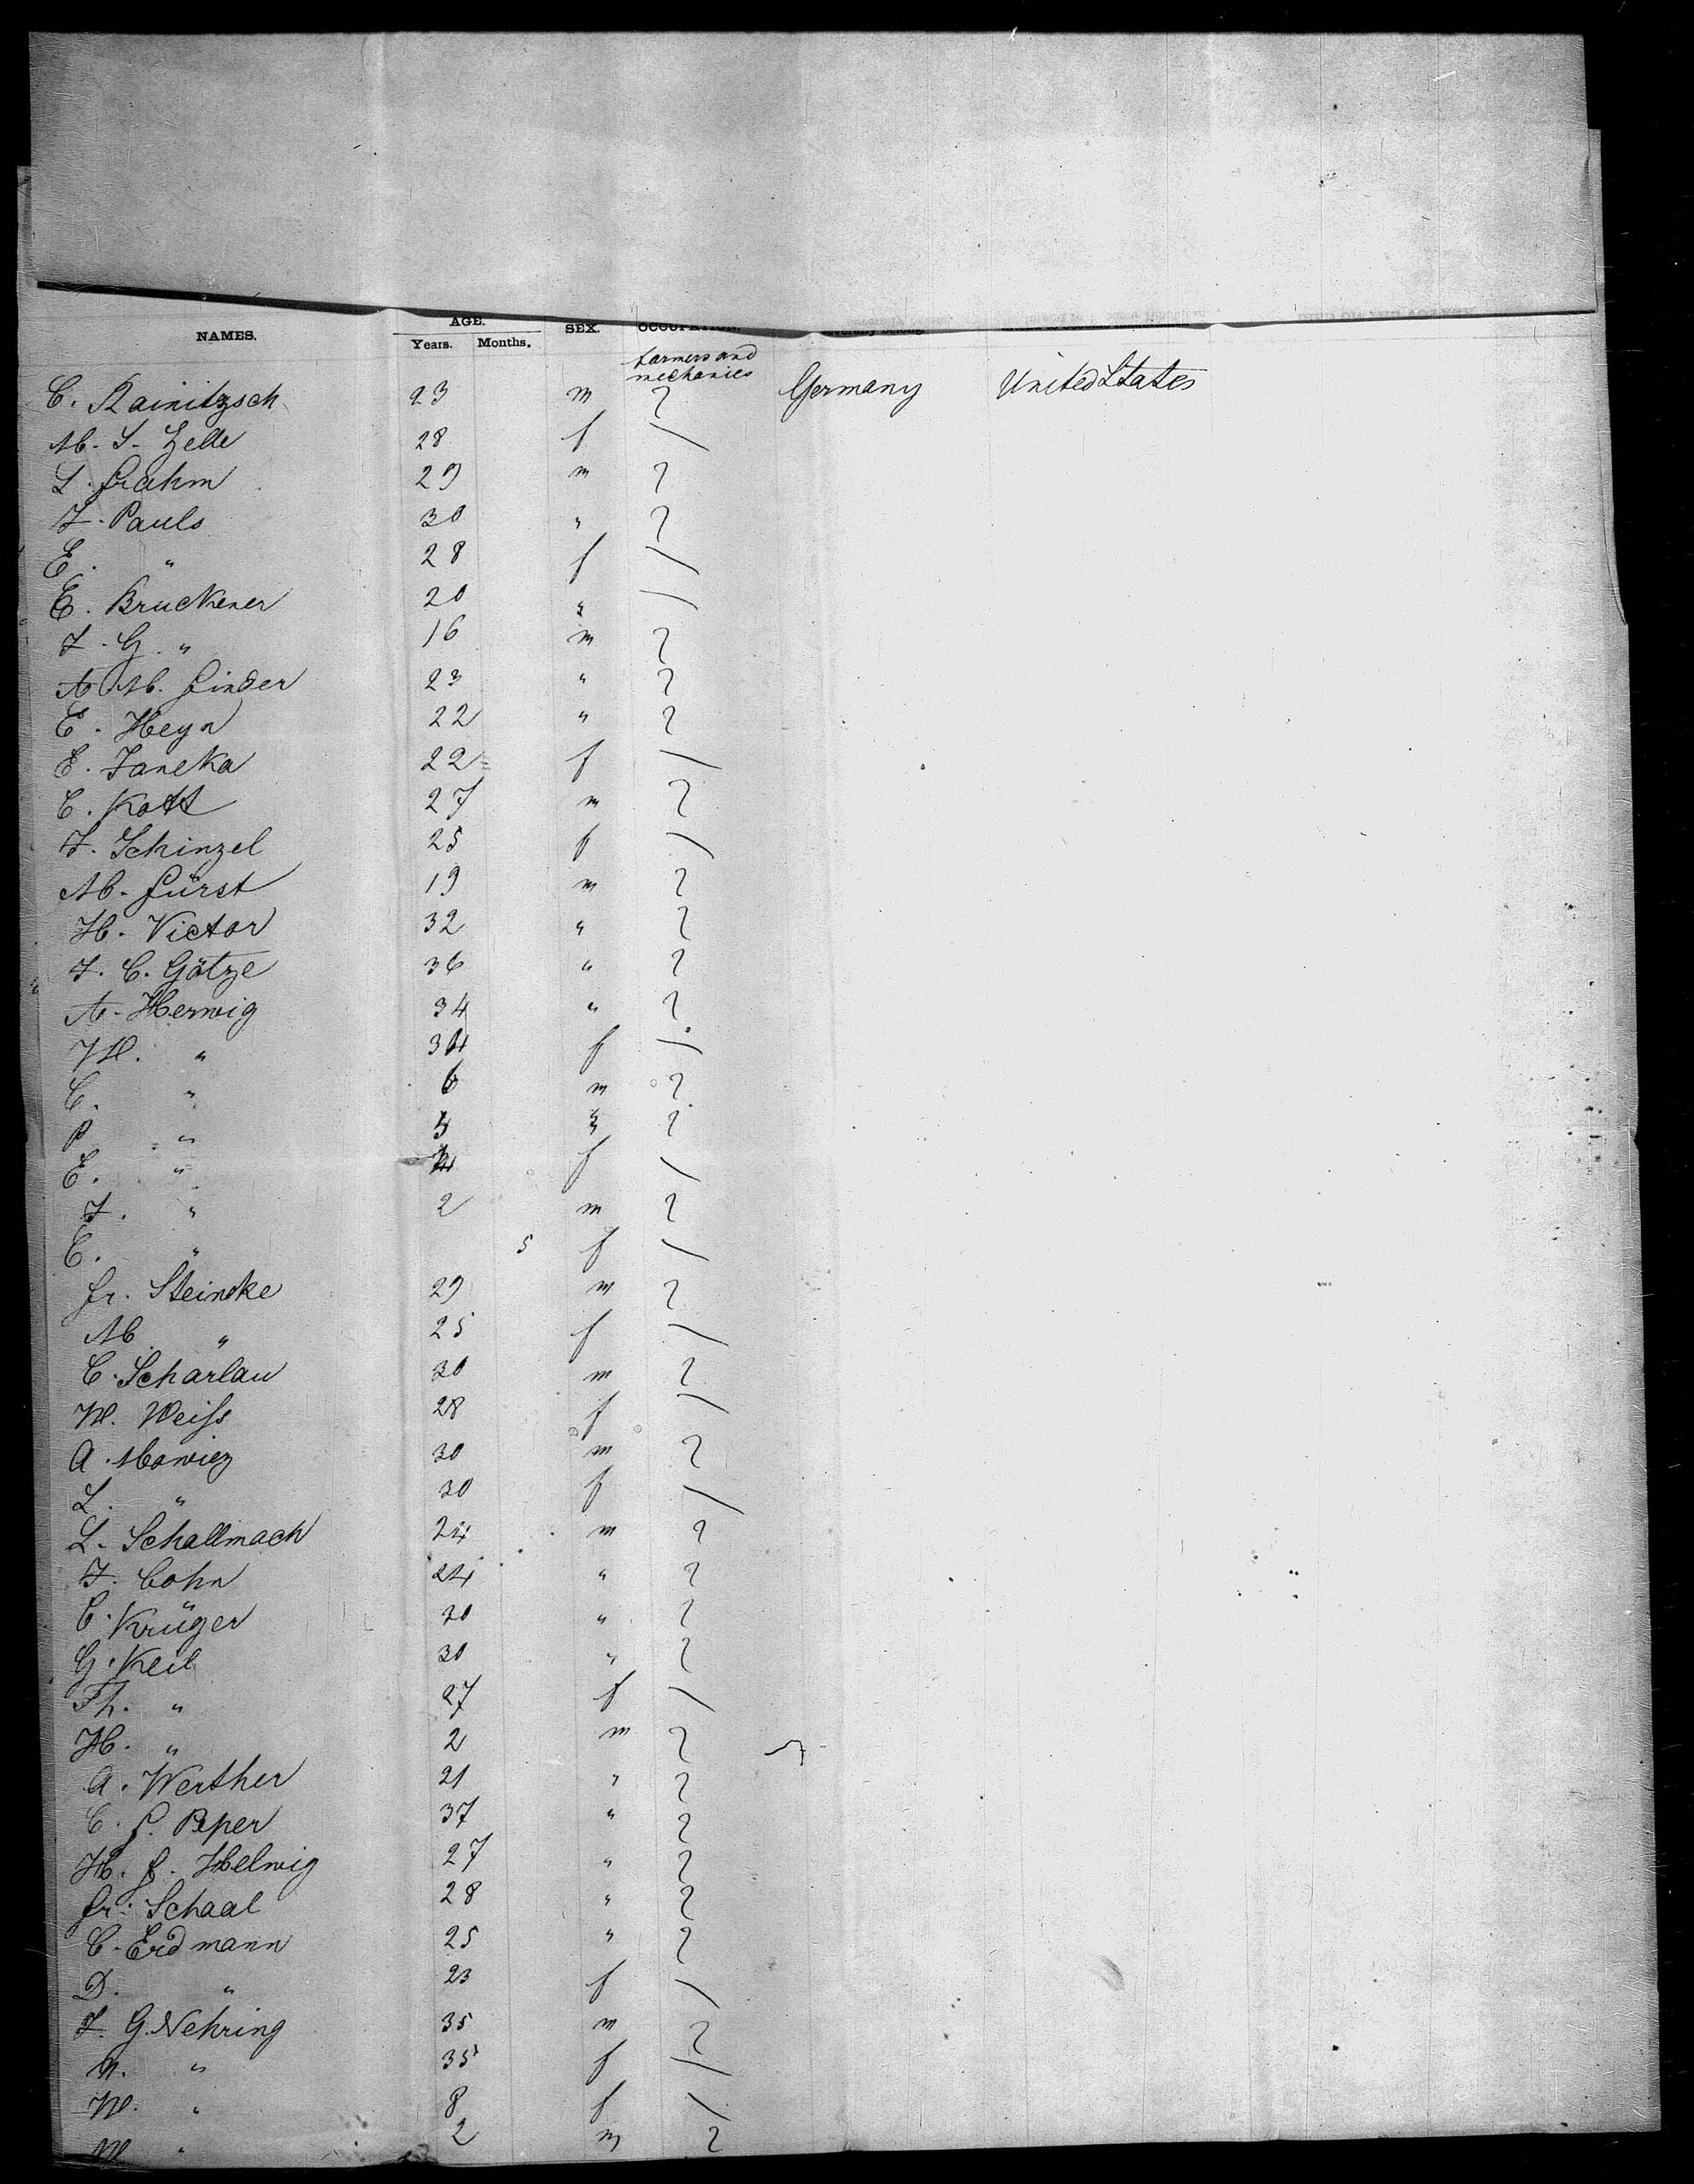 NAMES. AGE. SEX. OCCUPATION.
Years. Months.
Farmers and
mechanics
C. Rainitzsch 23 m Germany United States
M. S. Zelle 28 f
L. Frahm 29 m
J. Pauls 30 "
E. " 28 f
E. Bruckener 20 "
J. G. " 16 m
A. M. Finder 23 "
E. Heyn 22 "
E. Janeka 22 f
C. Kott 27 m
J. Schinzel 25 f
M. Fürst 19 m
H. Victor 32 "
J. C. Götze 36 "
A. Herwig 34 "
W. " 34 f
C. " 6 m
P. " "
E. " f
J. " 2 m
C. " 5 f
Fr. Steincke 29 m
M. " 25 f
C. Scharlau 30 m
W. Weiss 28 f
A. Mowicz 30 m
L. " 30 f
L. Schallmach 24 m
J. Cohn 24 "
C. Krüger 30 "
G. Keil 30 "
Th. " 27 f
H. " 2 m
A. Werther 21 "
C. F. Peper 37 "
H. F. Helwig 27 "
Fr. Schaal 28 "
C. Erdmann 25 "
D. " 23 f
J. G. Nehring 35 m
N. " 35 f
W. " 8 f
W. " 2 m